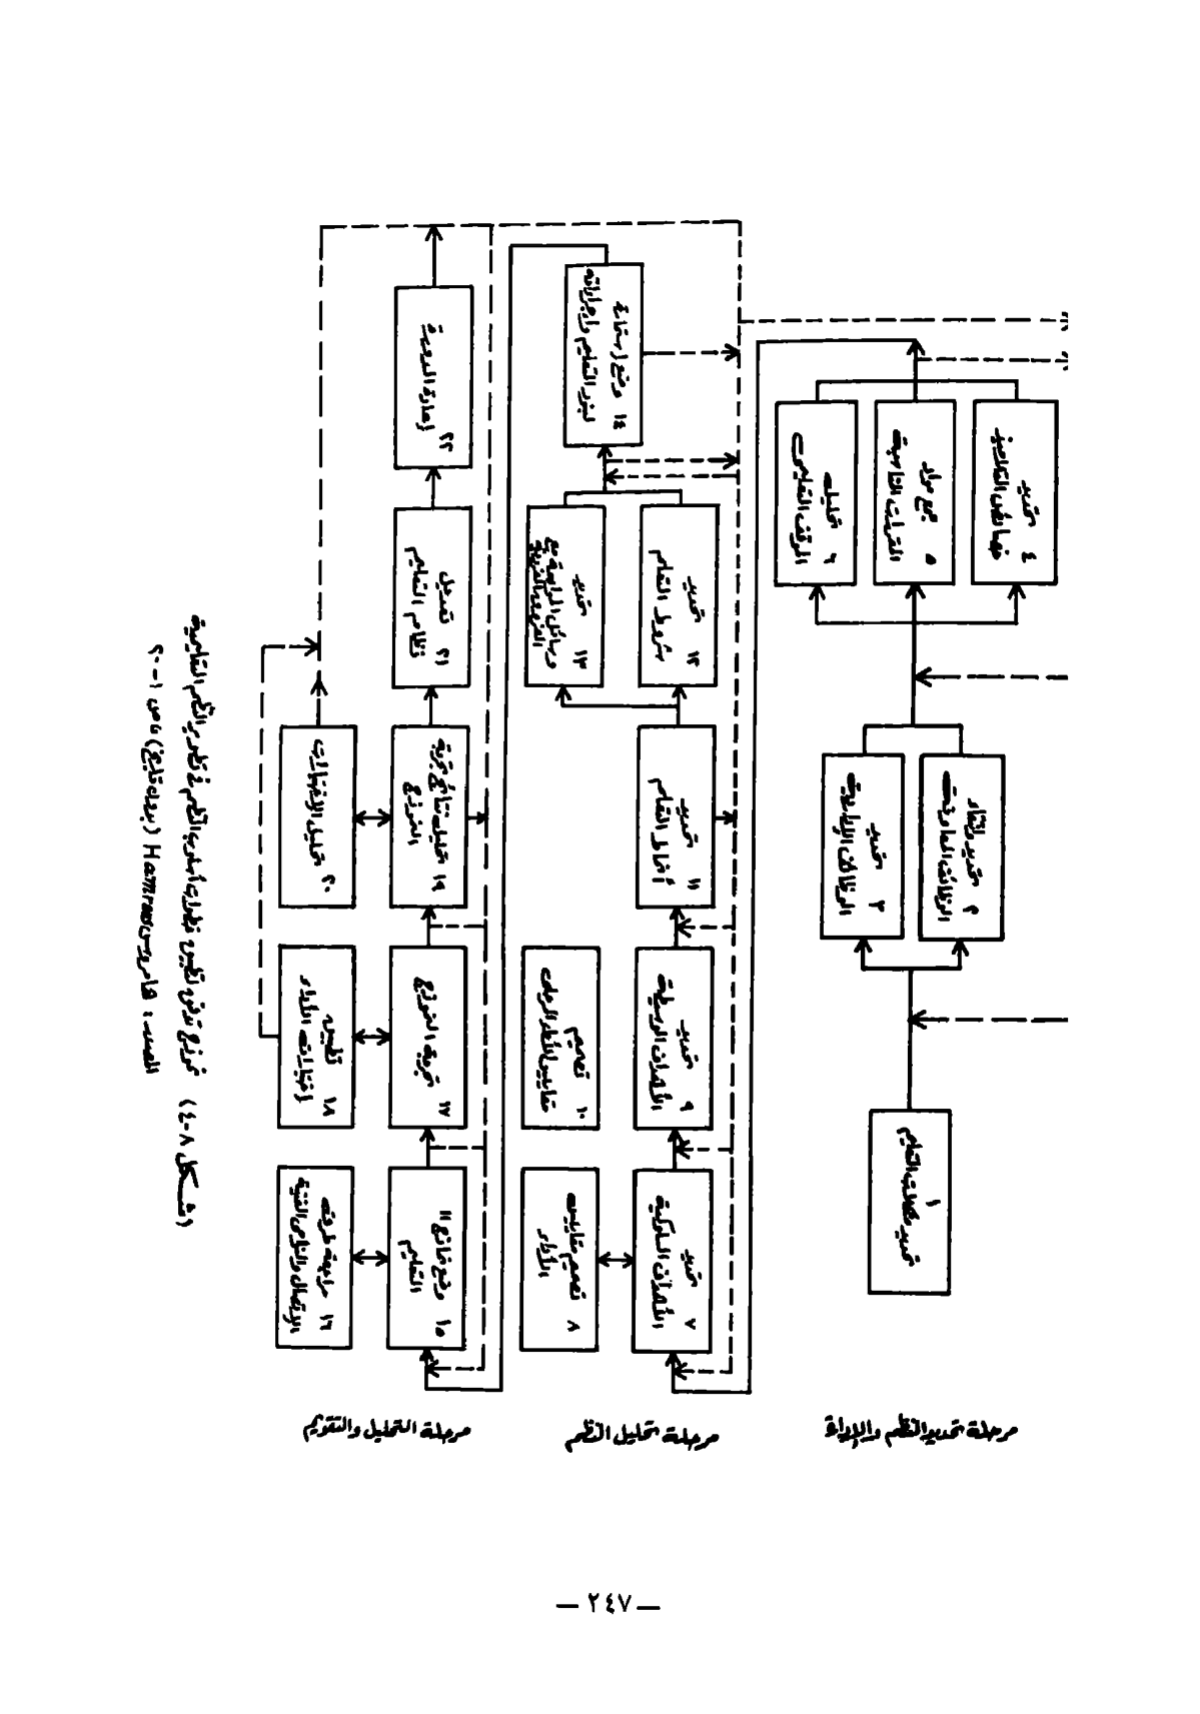 مرحلة تحديد النظم والإدارة
١
تحديد مشكلات التعليم
٢ تحديد وانتقاء
الوظائف المعاونة
٣ تحديد
الوظائف الإدارية
٤ تحديد
خصائص التلاميذ
٥ جمع مواد
٦ تحليل
الموقف التعليمي
مرحلة تحليل النظم
٧ تحديد
الأهداف السلوكية
٨ تصميم مقاييس
الأداء
٩ تحديد
الأهداف الوسيطة
١٠ تصميم
مقاييس
١١ تحديد
أنماط التعلم
١٢ تحديد
شروط التعلم
١٣ تحديد
١٤ وضع
التعليم وإجراءاته
مرحلة التحليل والتقويم
١٥ وضع نماذج
التعليم
١٦ مراجعة طريقة
الاتصال والنواحي الفنية
١٧ تجربة النموذج
١٨ تطبيق
إختبارات الأداء
١٩ تحليل نتائج تجربة
النموذج
٢٠ تحليل الاختبارات
٢١ تعديل
نظام التعليم
٢٢ إعادة الدورة
(شكل ٨-٤) نموذج توفيق لتطبيق خطوات أسلوب النظم في تطوير النظم التعليمية
المصدر: هامريس Hamreus (بدون تاريخ) ص ١-٢٠
— ٢٤٧ —